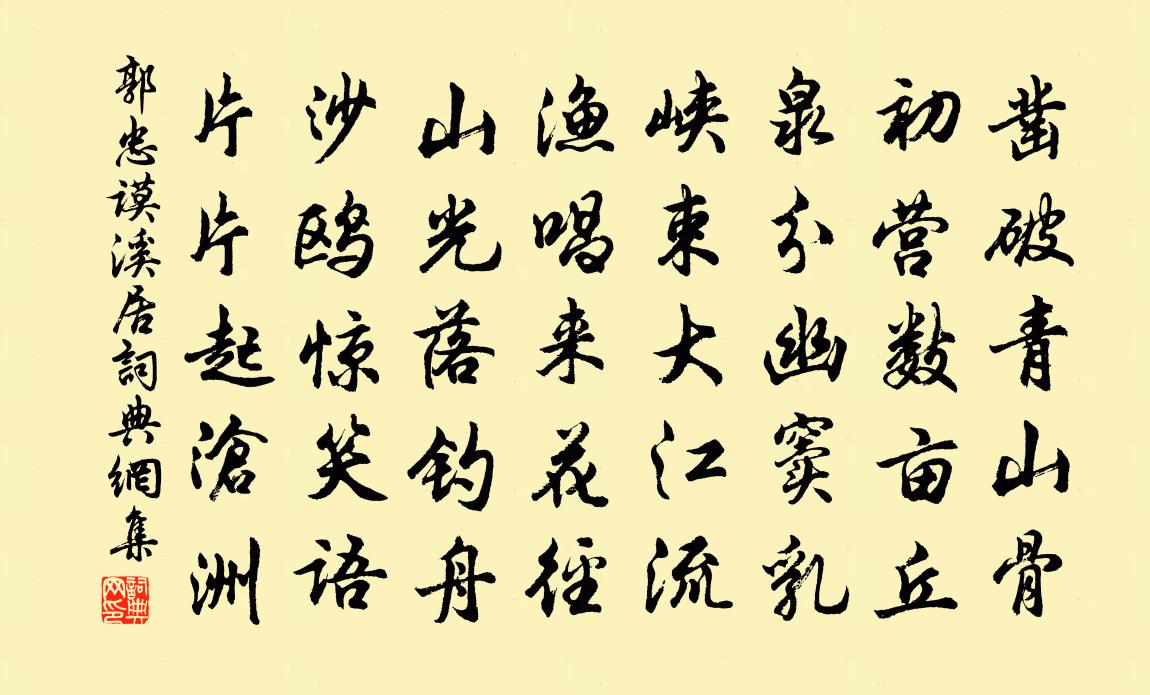 凿破青山骨
初营数亩丘
泉分幽窦乳
峡束大江流
渔唱来花径
山光落钓舟
沙鸥惊笑语
片片起滄洲
郭忠謨溪居詞典網集
詞典